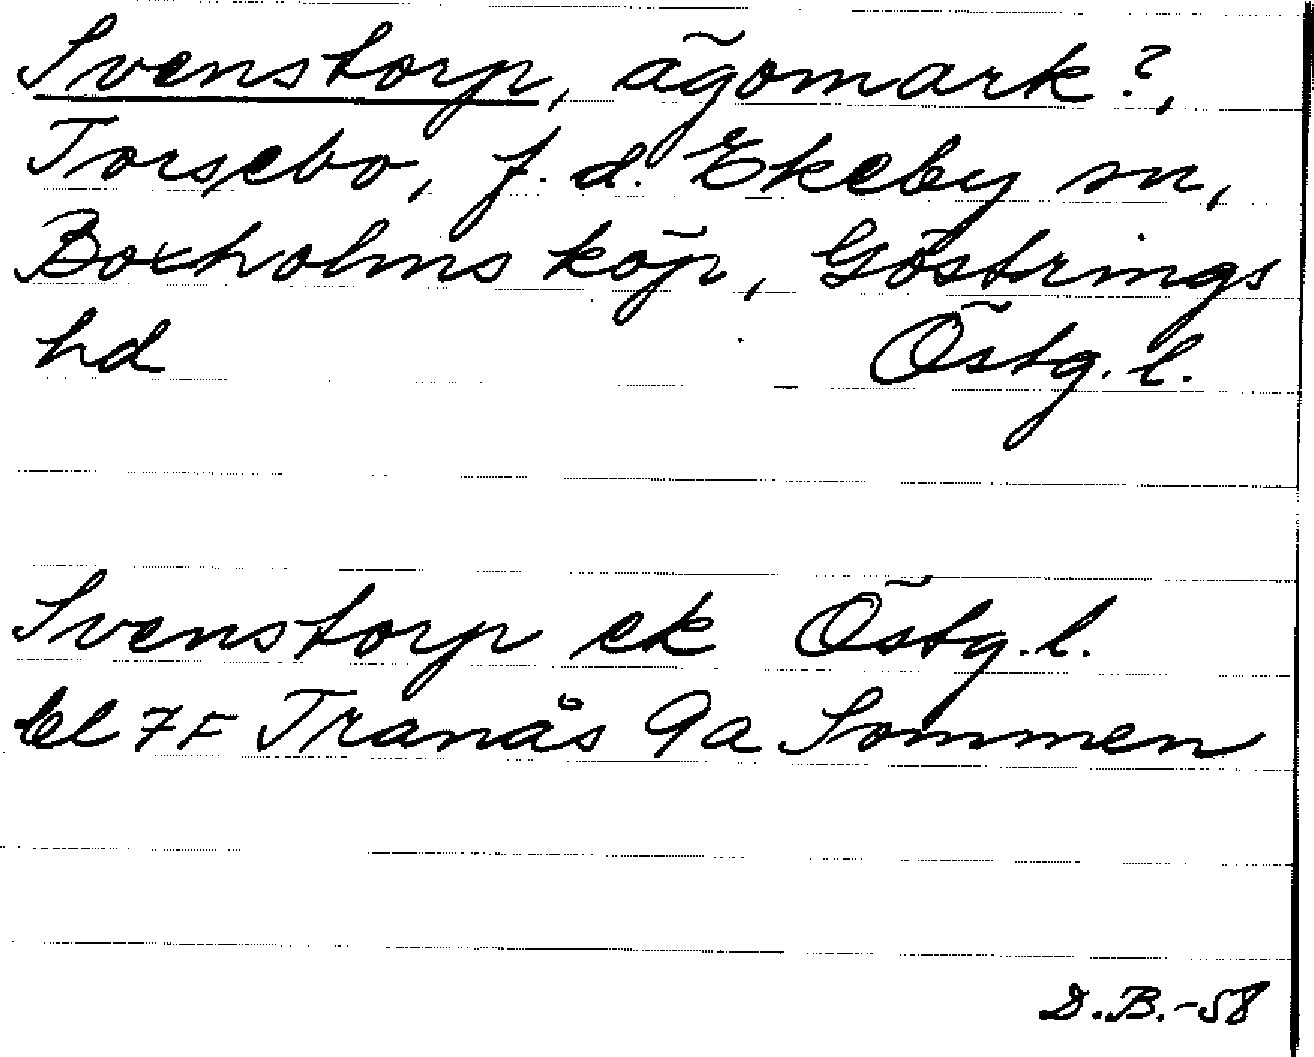 Svenstorp, ägomark?,
Torsebo, f.d. Ekeby sn,
Boxholms köp, Göstrings
hd Östg. l.
Svenstorp ek Östg. l.
bl 7F Tranås 9a Sommen
D.B.-58